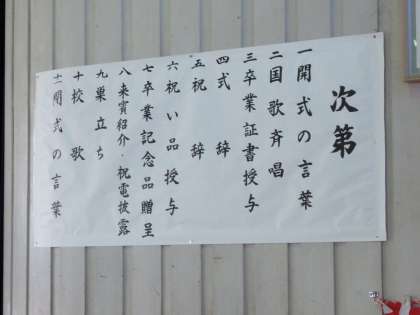 次第
一開式の言葉
二国歌斉唱
三卒業証書授与
四式辞
五祝辞
六祝い品授与
七卒業記念品贈呈
八来賓紹介・祝電披露
九巣立ち
十校歌
十一閉式の言葉